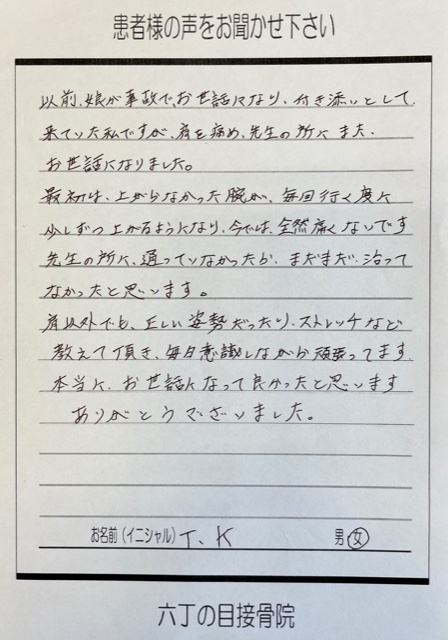 患者様の声をお聞かせ下さい
以前、娘が事故でお世話になり、付き添いとして
来ていた私ですが、肩を痛め、先生の所にまた、
お世話になりました。
最初は、上がらなかった腕が、毎回行く度に
少しずつ上がるようになり、今では、全然痛くないです
先生の所に、通っていなかったら、まだまだ、治って
なかったと思います。
肩以外でも、正しい姿勢だったり、ストレッチなど
教えて頂き、毎日意識しながら頑張ってます。
本当に、お世話になって良かったと思います
ありがとうございました。
お名前（イニシャル） T、K 男 女
六丁の目接骨院